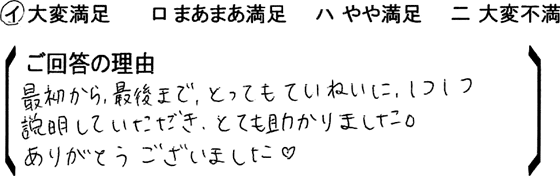 イ 大変満足 ロ まあまあ満足 ハ やや満足 ニ 大変不満
ご回答の理由
最初から、最後まで、とってもていねいに、1つ1つ
説明していただき、とても助かりました。
ありがとうございました♡